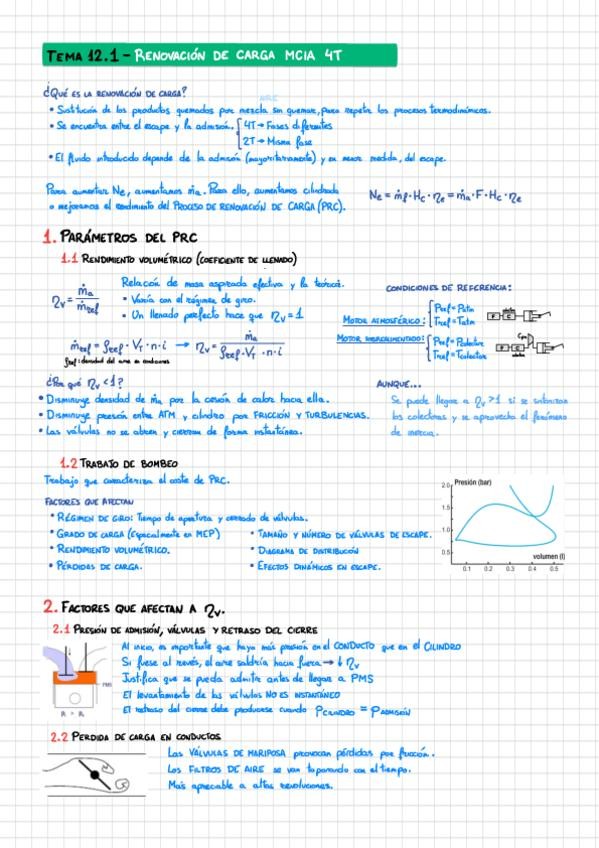 TEMA 12.1 - RENOVACIÓN DE CARGA MCIA 4T
¿QUÉ ES LA RENOVACIÓN DE CARGA?
AIRE
• Sustitución de los productos quemados por mezcla sin quemar, para repetir los procesos termodinámicos.
• Se encuentra entre el escape y la admisión. { 4T → Fases diferentes
2T → Misma fase
• El fluido introducido depende de la admisión (mayoritariamente) y en menor medida, del escape.
Para aumentar Ne, aumentamos ṁa. Para ello, aumentamos cilindrada
o mejoramos el rendimiento del PROCESO DE RENOVACIÓN DE CARGA (PRC).
Ne = ṁf · Hc · ηe = ṁa · F · Hc · ηe
1. PARÁMETROS DEL PRC
1.1 RENDIMIENTO VOLUMÉTRICO (COEFICIENTE DE LLENADO)
ηv = ṁa / ṁref
Relación de masa aspirada efectiva y la teórica.
• Varía con el régimen de giro.
• Un llenado perfecto hace que ηv = 1
ṁref = ρref · VT · n · i → ηv = ṁa / ρref · VT · n · i
ρref: densidad del aire en condiciones
CONDICIONES DE REFERENCIA:
MOTOR ATMOSFÉRICO: { Pref = Patm
Tref = Tatm
F C
MOTOR SOBREALIMENTADO: { Pref = Pcolector
Tref = Tcolector
¿Por qué ηv < 1?
• Disminuye densidad de ṁa por la cesión de calor hacia ella.
• Disminuye presión entre ATM y cilindro por FRICCIÓN Y TURBULENCIAS.
• Las válvulas no se abren y cierran de forma instantánea.
AUNQUE...
Se puede llegar a ηv > 1 si se sintonizan
los colectores y se aprovecha el fenómeno
de inercia.
1.2 TRABAJO DE BOMBEO
Trabajo que caracteriza el coste de PRC.
FACTORES QUE AFECTAN
• RÉGIMEN DE GIRO: Tiempo de apertura y cerrado de válvulas.
• GRADO DE CARGA (Especialmente en MEP)
• RENDIMIENTO VOLUMÉTRICO.
• PÉRDIDAS DE CARGA.
• TAMAÑO Y NÚMERO DE VÁLVULAS DE ESCAPE.
• DIAGRAMA DE DISTRIBUCIÓN
• EFECTOS DINÁMICOS EN ESCAPE.
Presión (bar)
2.0
1.5
1.0
0.5
volumen (l)
0.1 0.2 0.3 0.4 0.5
2. FACTORES QUE AFECTAN A ηv.
2.1 PRESIÓN DE ADMISIÓN, VÁLVULAS Y RETRASO DEL CIERRE
PMS
Al inicio, es importante que haya más presión en el CONDUCTO que en el CILINDRO
Si fuese al revés, el aire saldría hacia fuera → ↓ ηv
Justifica que se pueda admitir antes de llegar a PMS
El levantamiento de las válvulas NO ES INSTANTÁNEO
El retraso del cierre debe producirse cuando PCILINDRO = PADMISIÓN
2.2 PERDIDA DE CARGA EN CONDUCTOS
Las VÁLVULAS DE MARIPOSA provocan pérdidas por fricción.
Los FILTROS DE AIRE se van taponando con el tiempo.
Más apreciable a altas revoluciones.